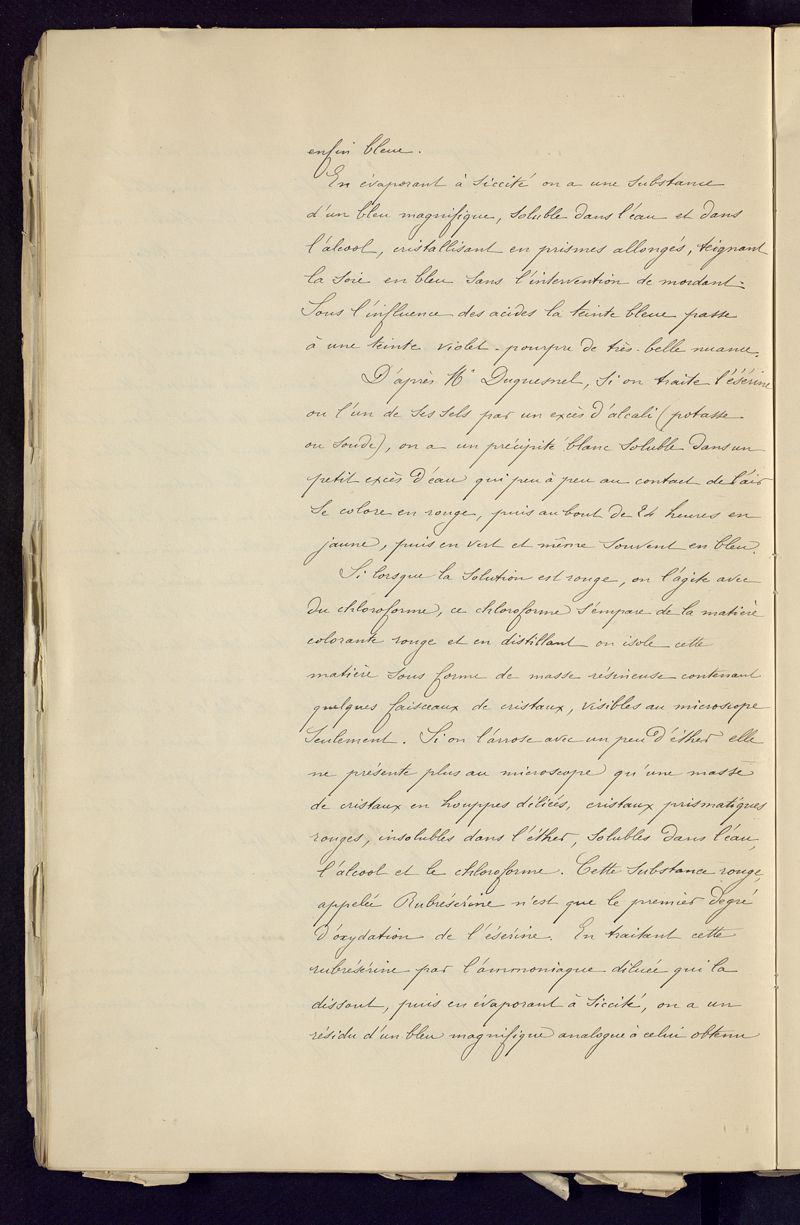 enfin bleue.
En évaporant à siccité on a une substance
d'un bleu magnifique, soluble dans l'eau et dans
l'alcool, cristallisant en prismes allongés, teignant
la soie en bleu sans l'intervention de mordant.
Sous l'influence des acides la teinte bleue passe
à une teinte violet-pourpre de très-belle nuance.
D'après Mr Duquesnel, si on traite l'ésérine
ou l'un de ses sels par un excès d'alcali (potasse
ou soude), on a un précipité blanc soluble dans un
petit excès d'eau qui peu à peu au contact de l'air
se colore en rouge, puis au bout de 24 heures en
jaune, puis en vert et même souvent en bleu.
Si lorsque la solution est rouge, on l'agite avec
du chloroforme, ce chloroforme s'empare de la matière
colorante rouge et en distillant on isole cette
matière sous forme de masse résineuse contenant
quelques faisceaux de cristaux, visibles au microscope
seulement. Si on l'arrose avec un peu d'éther elle
ne présente plus au microscope qu'une masse
de cristaux en houppes déliées, cristaux prismatiques
rouges, insolubles dans l'éther, solubles dans l'eau,
l'alcool et le chloroforme. Cette substance rouge,
appelée Rubrésérine n'est que le premier degré
d'oxydation de l'ésérine. En traitant cette
rubrésérine par l'ammoniaque diluée qui la
dissout, puis en évaporant à siccité, on a un
résidu d'un bleu magnifique analogue à celui obtenu